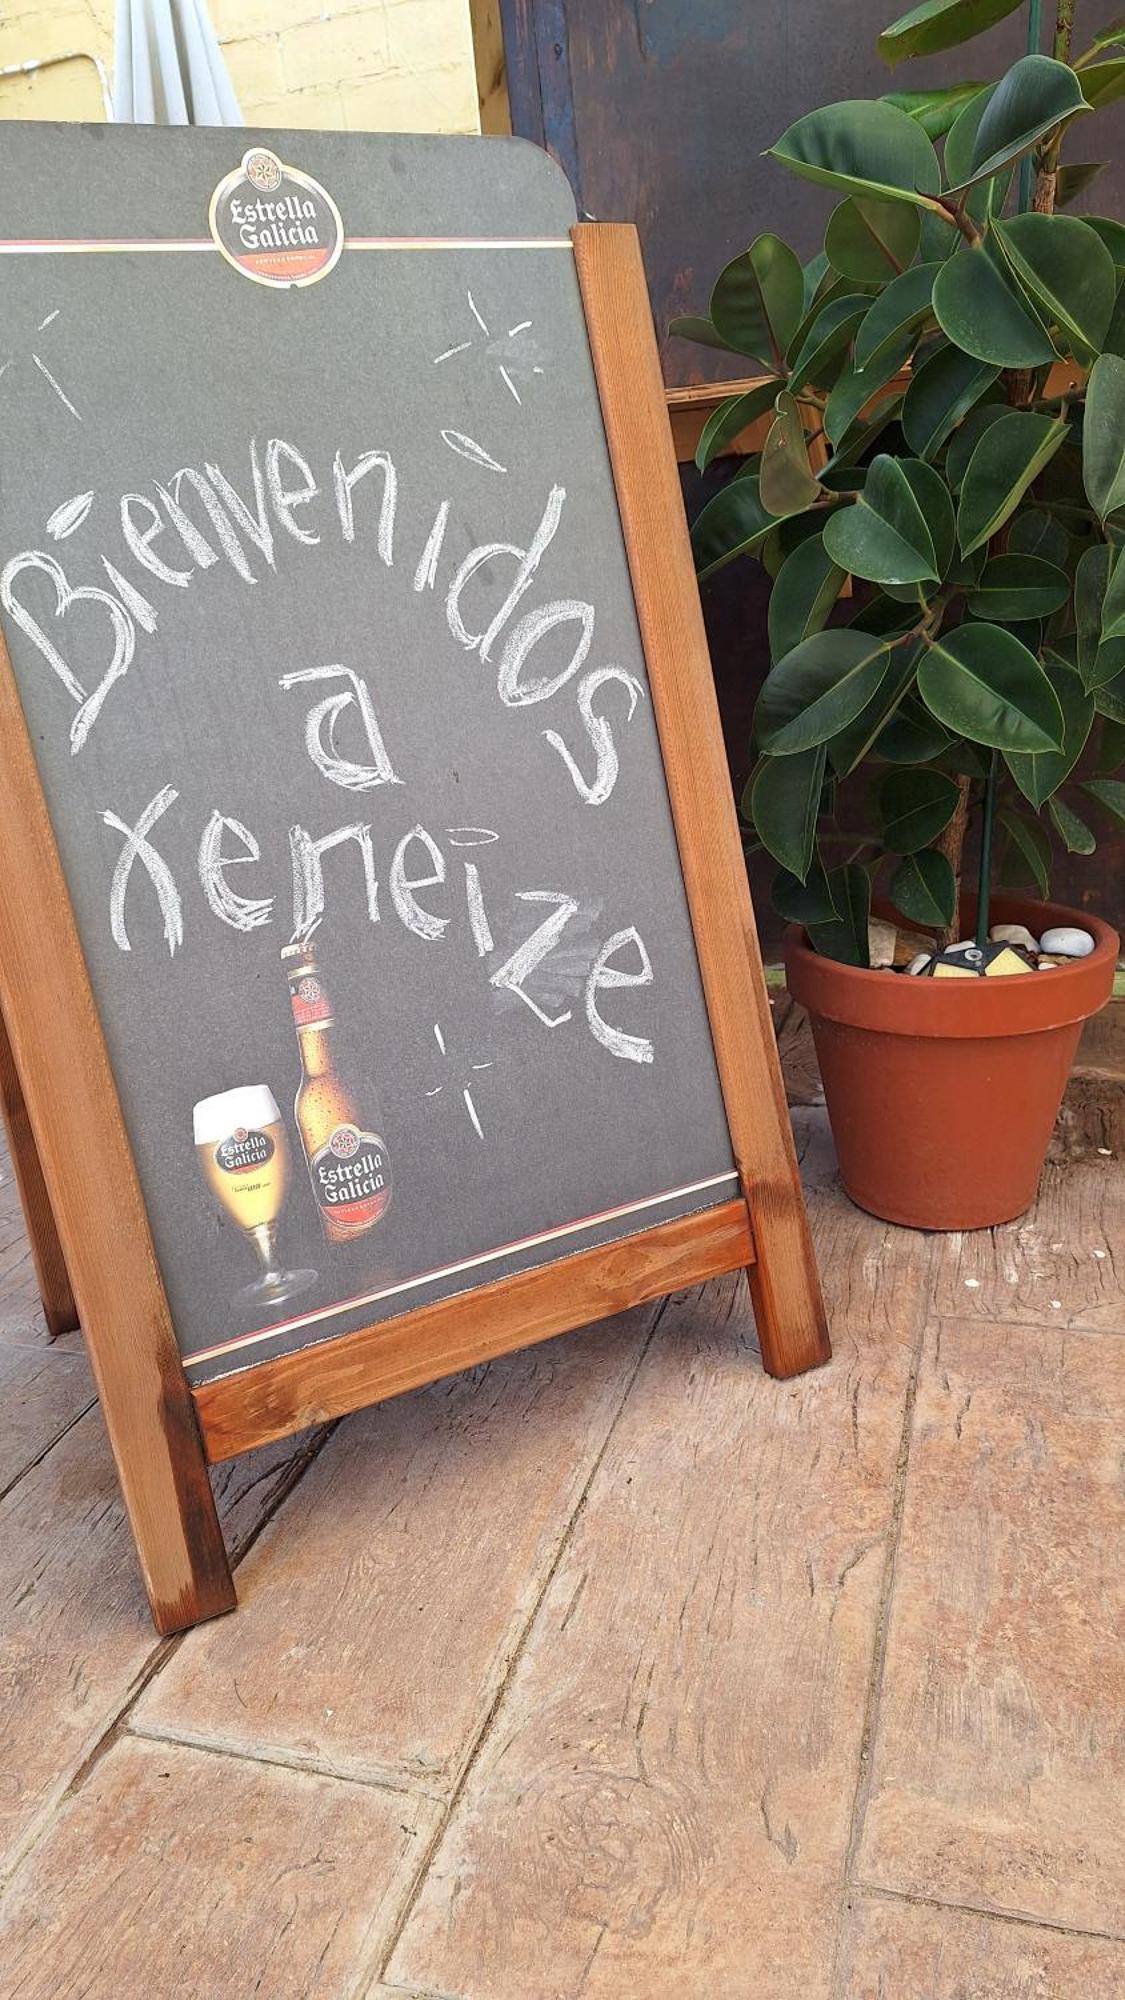 Estrella
Galicia
Bienvenidos
a
Xeneize
Estrella
Galicia
Estrella
Galicia